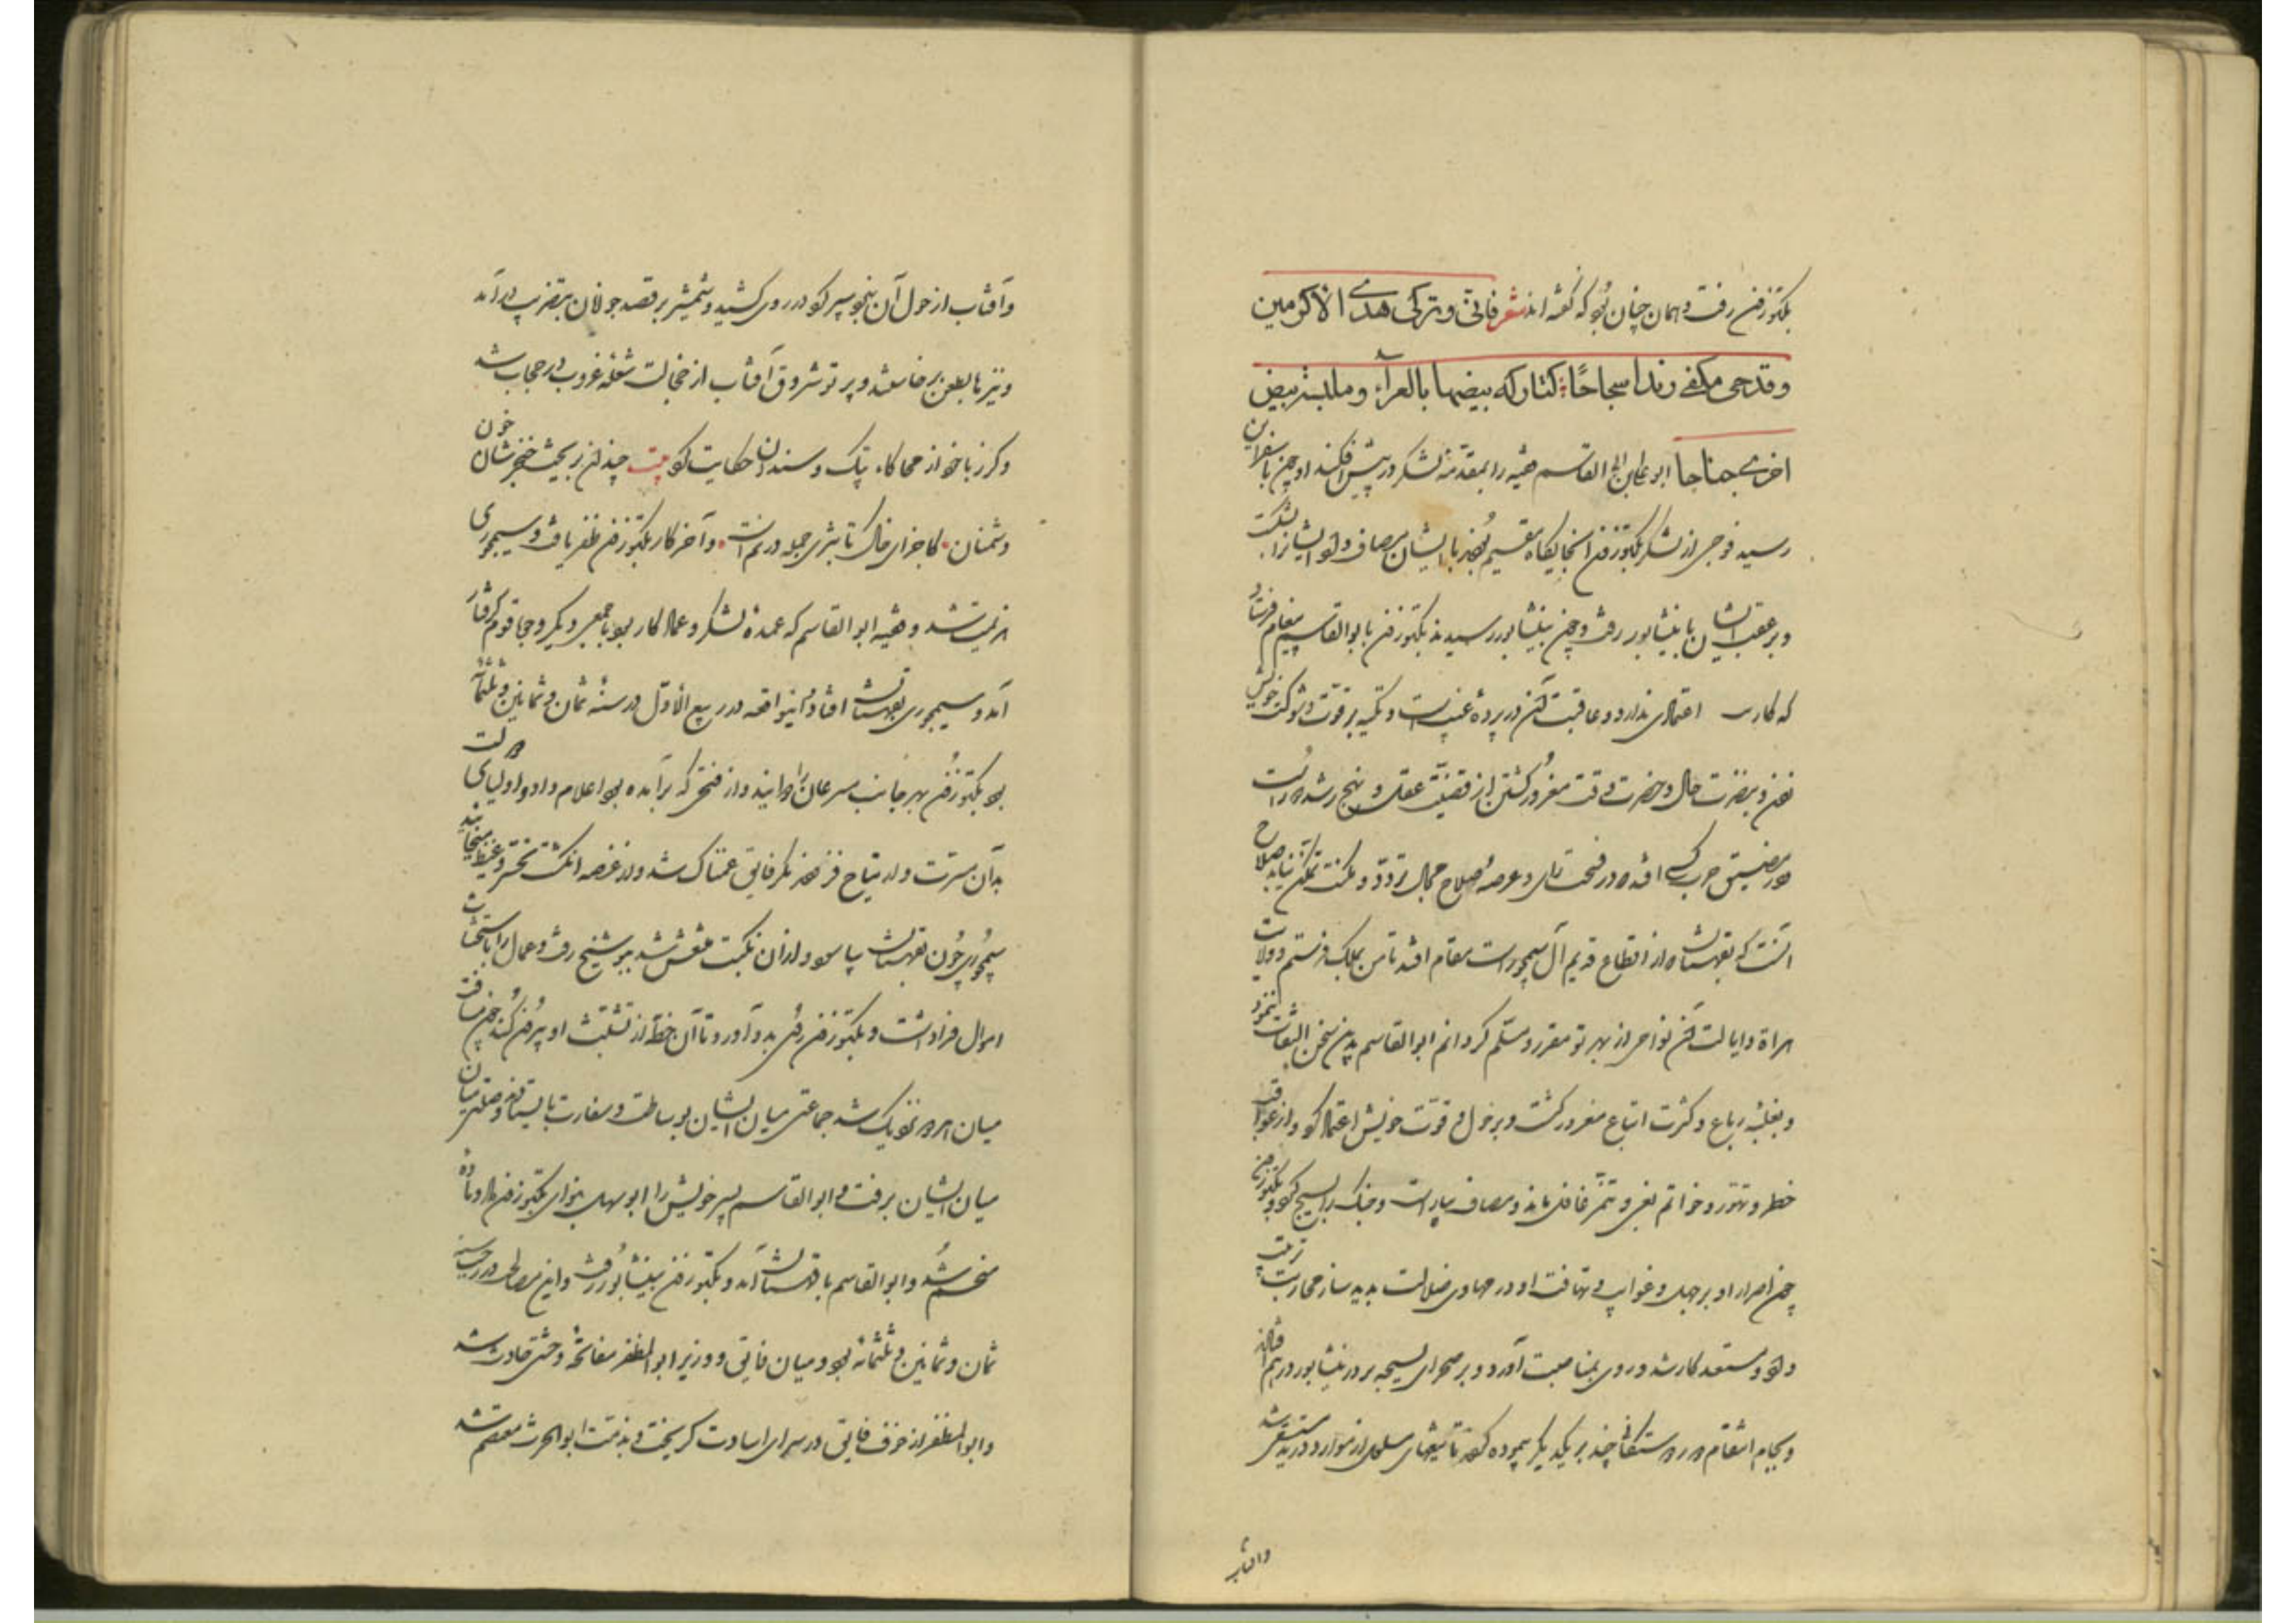 بکتوزن رفت و همان چنان بود که گفته اند شعر فانی و ترکی هدی الاکرمین
و قدحی مکفی زندا سجاحا کتارکه بیضها بالعراء و ملبسه بیض
اخری جناحا ابو علی بن ابی القاسم فقیه را بمقدمه لشکر در پیش افکند او چون باسفراین
رسید فوجی از لشکر بکتوزن آنجایگاه مقیم بودند با ایشان مصاف داد و ایشانرا بشکست
و بر عقب ایشان تا بنیشابور رفت و چون بنیشابور رسیدند بکتوزن بابوالقاسم پیغام فرستاد
که کار اعتمادی ندارد و عاقبت آن در پرده غیب است و تکیه بر قوت و شوکت خویش
زدن و بنضرت حال و خضرت وقت مغرور گشتن از قضیت عقل و نهج رشد دور است
و در مضیق حرب کسی افتد که در فسحت رای و عرصه صلاح مجال تردد و مکنت تمکن نیابد صلاح
آنست که بقهستان که از اقطاع قدیم آل سیمجور است مقام افتد تا من بملک فرستم و ولایت
هراة و ایالت آن نواحی از بهر تو مقرر و مسلم گردانم ابوالقاسم بدین سخن التفات ننمود
و بغلبه رباع و کثرت اتباع مغرور گشت و بر حول و قوت خویش اعتماد کرد و از عواقب
خطر و تهور و خواتم بغی و تنمر غافل ماند و مصاف بیاراست و جنگ را بسیج کرد و بکتوزن
چون اصرار او بر جهل و غوایت و تهافت او در مهاوی ضلالت بدید ساز محاربت ترتیب
داد و مستعد کار شد و روی بمناصبت آورد و بر صحرای بسیجه بر در نیشابور درهم افتادند
و بجام انتقام دور دوستکانی چند بر یکدیگر پیمودند تا تیغهای مسلول از موارد ورید مستسقی شد
وآفتاب
وآفتاب از حول آن نبرد سپر کرد در روی کشید و شمشیر بر قصد جولان بتضریب درآمد
و نیزه بطعن برخاست و پرتو شروق آفتاب از خجالت شعله غروب در حجاب شد
و گرز باخواز محاکاه پتک و سندان حکایت کرد بیت چندان بریخت خنجرشان خون
دشمنان کاجزای خاک تا بثری جمله در نم است و آخر کار بکتوزن ظفر یافت و سیمجوری
هزیمت شد و فقیه ابوالقاسم که عمده لشکر و عماد کار بود با جمعی دیگر وجها قوم گرفتار
آمد و سیمجوری بقهستان افتاد و اینواقعه در ربیع الاول در سنه ثمان و ثمانین و ثلثمائه
بود بکتوزن بهر جانب مسرعان را دوانید و از فتحی که برآمده بود اعلام داد و اولیای دولت
بدان مسرت و ارتیاح فزودند مگر فایق غمناک شد و از غصه انگشت تحسر و غیظ میخائید
سیمجوری چون بقهستان بیاسود و از آن نکبت منتعش شد ببوشنج رفت و عمال را باستحثاث
اموال فراداشت و بکتوزن روی بدو آورد تا آن خطه از تشبث او بیرون کند چون مسافت
میان هر دو نزدیک شد جماعتی میان ایشان بوساطت و سفارت بایستادند و صلحی میان
میان ایشان برفت و ابوالقاسم پسر خویش را ابوسهل بنوای بکتوزن داد و ماده
منحسم شد و ابوالقاسم با قهستان آمد و بکتوزن بنیشابور رفت و این مصالحه در رجب سنه
ثمان و ثمانین و ثلثمائه بود و میان فایق و وزیر ابوالمظفر مفاتحه وحشتی حادث شد
و ابوالمظفر از خوف فایق در سرای امارت گریخت و بذمت ابوالحرث معتصم شد